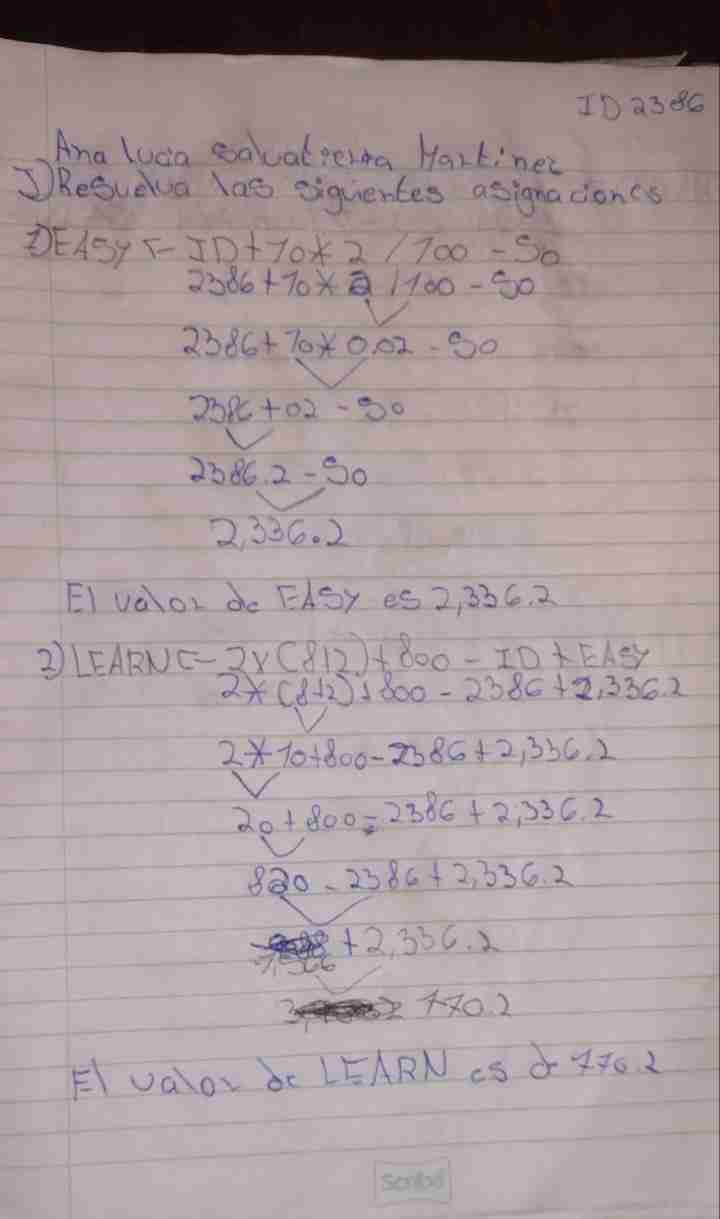 ID 2386
Ana lucia salvatierra Martinez
I) Resuelva las siguientes asignaciones
1) EASY ← ID + 10 * 2 / 100 - 50
2386 + 10 * 2 / 100 - 50
2386 + 10 * 0.02 - 50
2386 + 02 - 50
2386.2 - 50
2,336.2
El valor de EASY es 2,336.2
2) LEARN ← 2 * (8+2) + 800 - ID + EASY
2 * (8+2) + 800 - 2386 + 2,336.2
2 * 10 + 800 - 2386 + 2,336.2
20 + 800 - 2386 + 2,336.2
820 - 2386 + 2,336.2
+ 2,336.2
-1,566
770.2
El valor de LEARN es d 770.2
scribd